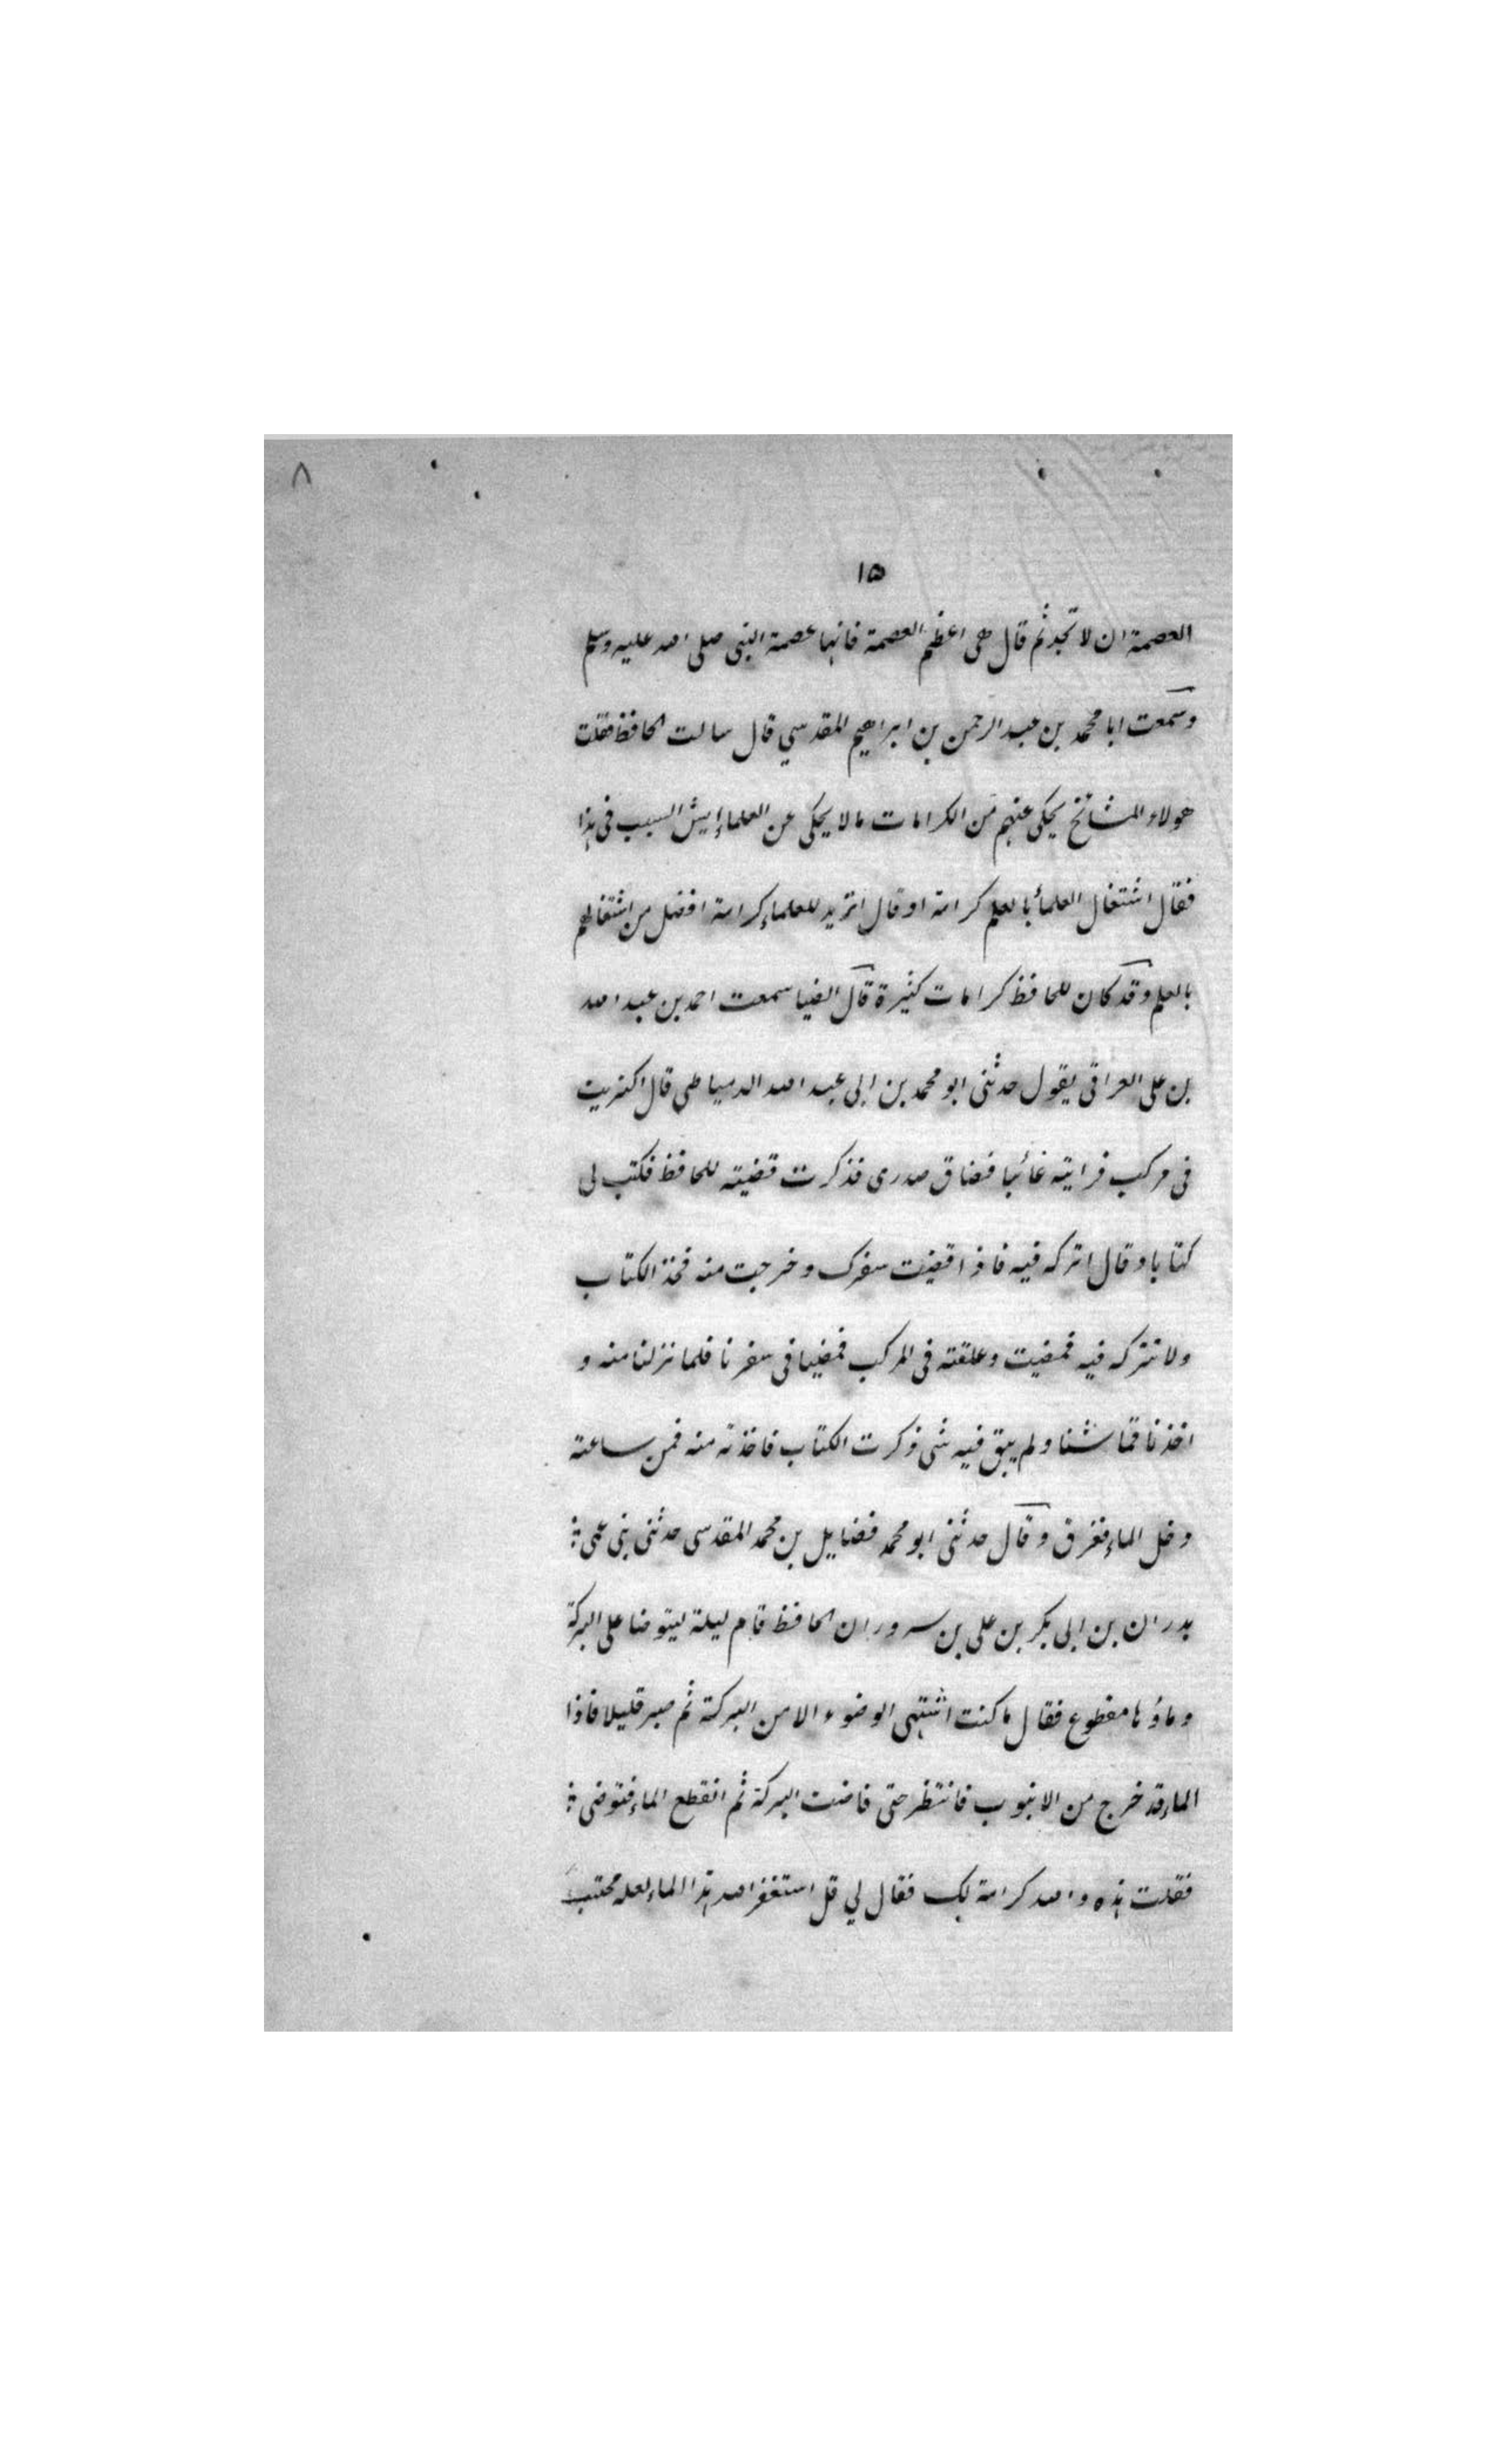 ٨
١٥
العصمة ان لا تجد ثم قال هى اعظم العصمة فانها عصمة النبى صلى الله عليه وسلم
وسمعت ابا محمد بن عبد الرحمن بن ابراهيم المقدسي قال سالت الحافظ فقلت
هولاء المشائخ يحكى عنهم من الكرامات ما لا يحكى عن العلماء ايش السبب فى هذا
فقال اشتغال العلمأ بالعلم كرامة او قال اتريد للعلماء كرامة افضل من اشتغالهم
بالعلم وقد كان للحافظ كرامات كثيرة قال الضيا سمعت احمد بن عبد الله
بن على العراقى يقول حدثنى ابو محمد بن ابى عبد الله الدمياطي قال اكتريت
فى مركب فرايته غائبا فضاق صدرى فذكرت قضيته للحافظ فكتب لى
كتابا وقال اتركه فيه فاذا قضيت سفرك وخرجت منه فخذ الكتاب
ولا تتركه فيه فمضيت وعلقته فى المركب فمضينا فى سفرنا فلما نزلنا منه و
اخذنا قماشنا ولم يبق فيه شى ذكرت الكتاب فاخذته منه فمن ساعته
دخل الماء فغرق وقال حدثنى ابو محمد فضايل بن محمد المقدسى حدثنى بنى عمى
بدران بن ابى بكر بن على بن سرور ان الحافظ قام ليلة ليتوضا على البركة
وماؤها مقطوع فقال ما كنت اشتهى الوضوء الا من البركة ثم صبر قليلا فاذا
الماء قد خرج من الانبوب فانتظر حتى فاضت البركة ثم انقطع الماء فتوضى
فقلت هذه والله كرامة لك فقال لي قل استغفر الله هذا الماء لعله محتبس